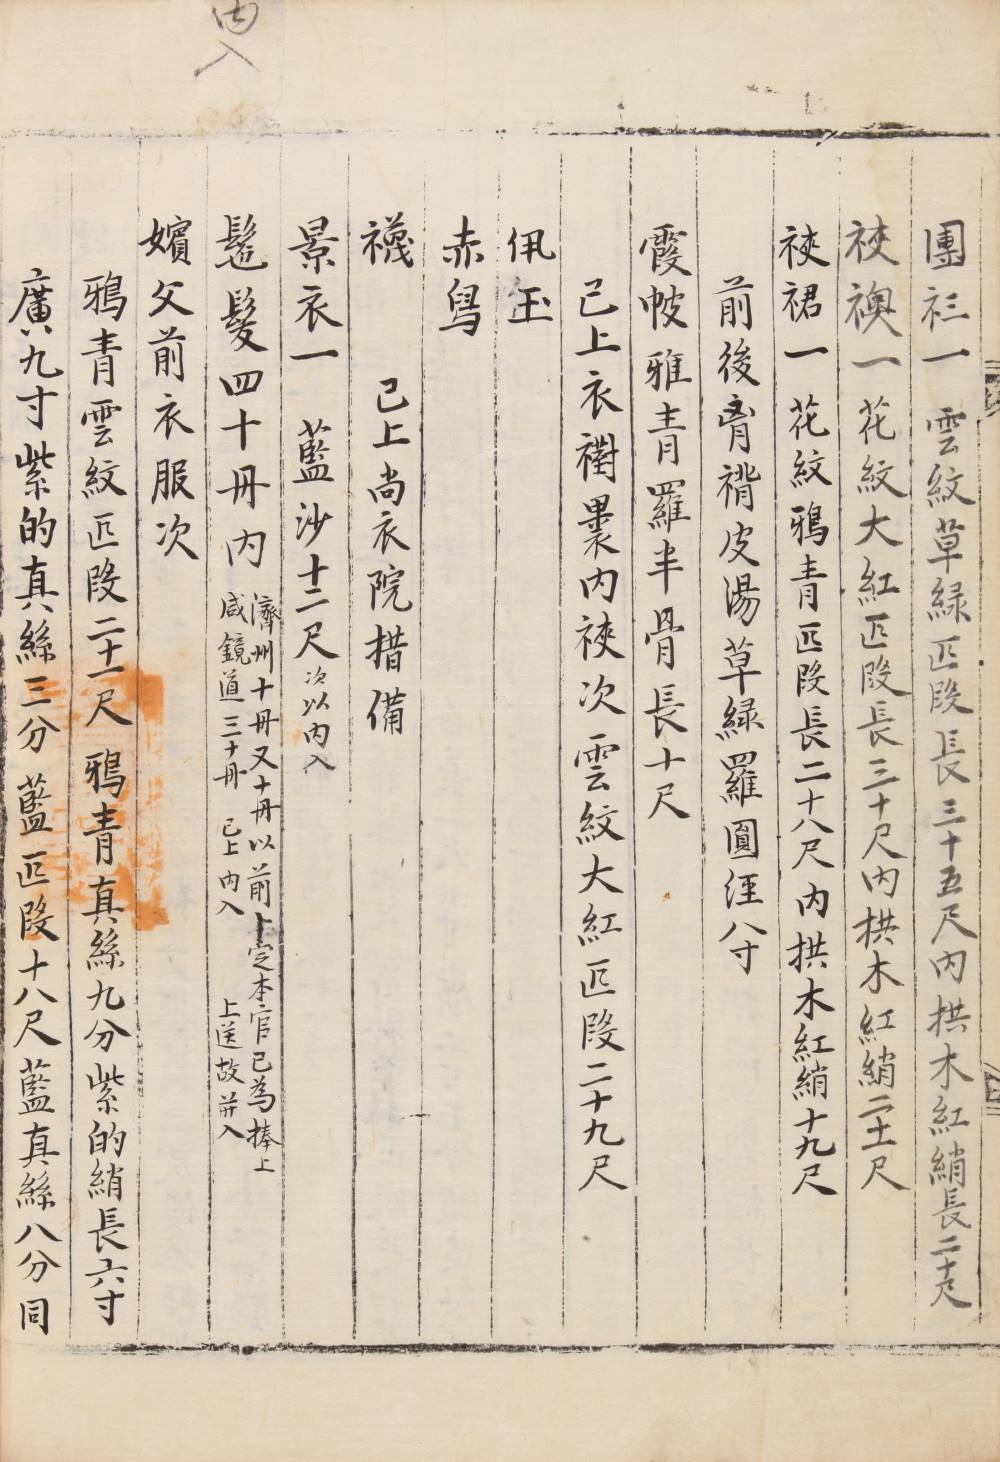 內入
團衫一 雲紋草綠匹段長三十五尺內拱木紅綃長二十尺
裌襖一花紋大紅匹段長三十尺內拱木紅綃二十一尺
裌裙一花紋鴉青匹段長二十八尺內拱木紅綃十九尺
前後胷褙皮湯草綠羅圓徑八寸
霞帔雅青羅半骨長十尺
已上衣襨裹內裌次雲紋大紅匹段二十九尺
佩玉
赤舄
襪 已上尚衣院措備
景衣一 藍沙十二尺次以內入
髢髮四十丹內濟州十丹又十丹以前卜定本官已為捧上
咸鏡道三十丹 已上內入 上送故并入
嬪父前衣服次
鴉青雲紋匹段二十一尺 鴉青真絲九分紫的綃長六寸
廣九寸紫的真絲三分藍匹段十八尺藍真絲八分同